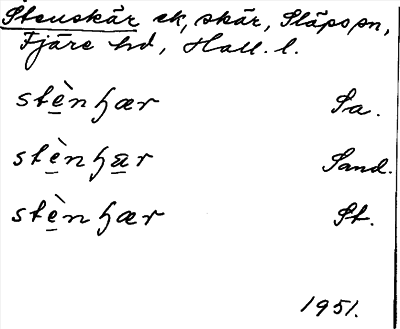 Stenskär ek, skär, Släps sn,
Fjäre hd, Hall. l.
stè̱nɧær Sa.
stè̱nɧa̱r Sand.
stè̱nɧær St.
1951.